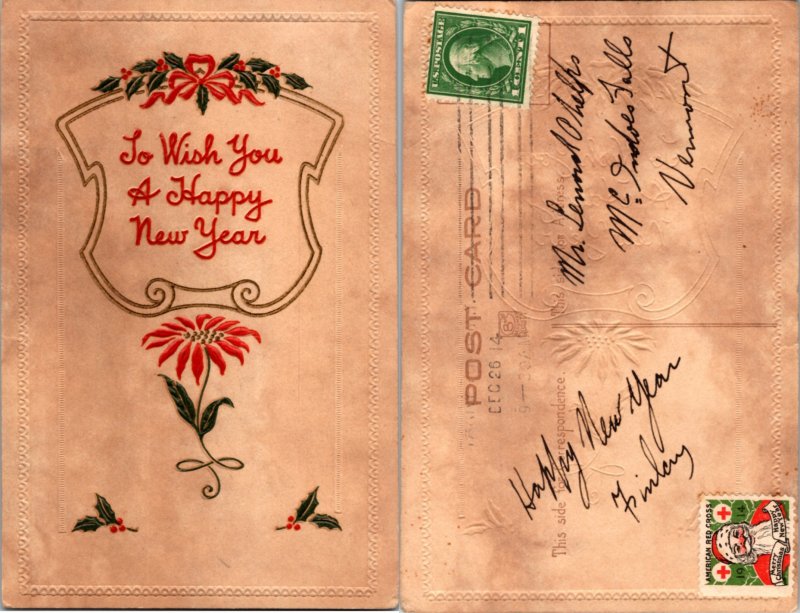 To Wish You
A Happy
New Year
U.S. POSTAGE
1 CENT 1
POST CARD
DEC 26 14
This side for Address.
Mr. Lenord Phelps
Mc Indoes Falls
Vermont
This side for correspondence.
Happy New Year
Finlay
AMERICAN RED CROSS
1914
Merry Christmas
Happy New Year